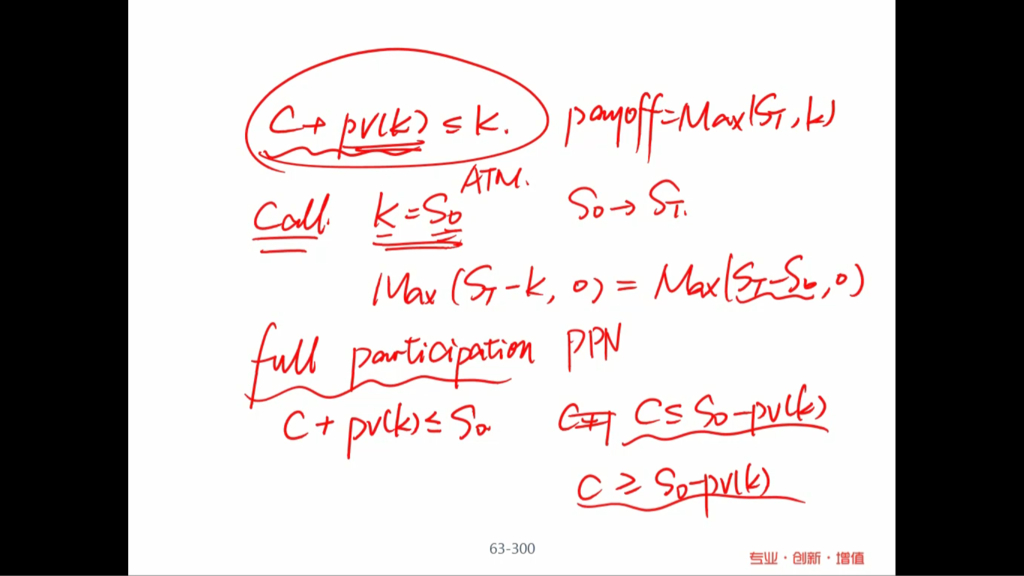 C + pv(k) ≤ k. payoff = Max(S_T, k)
ATM.
Call. k = S_0 S_0 → S_T.
Max (S_T - k, 0) = Max(S_T - S_0, 0)
full participation PPN
C + pv(k) ≤ S_0 C ≤ S_0 - pv(k)
C ≥ S_0 - pv(k)
63-300
专业·创新·增值